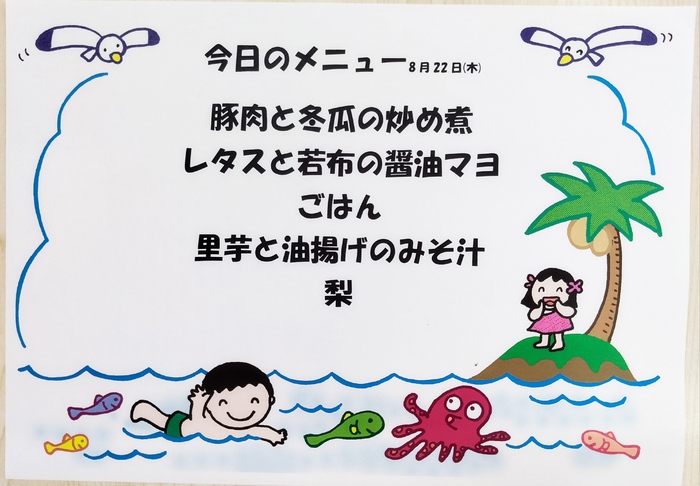 今日のメニュー 8月22日(木)
豚肉と冬瓜の炒め煮
レタスと若布の醤油マヨ
ごはん
里芋と油揚げのみそ汁
梨